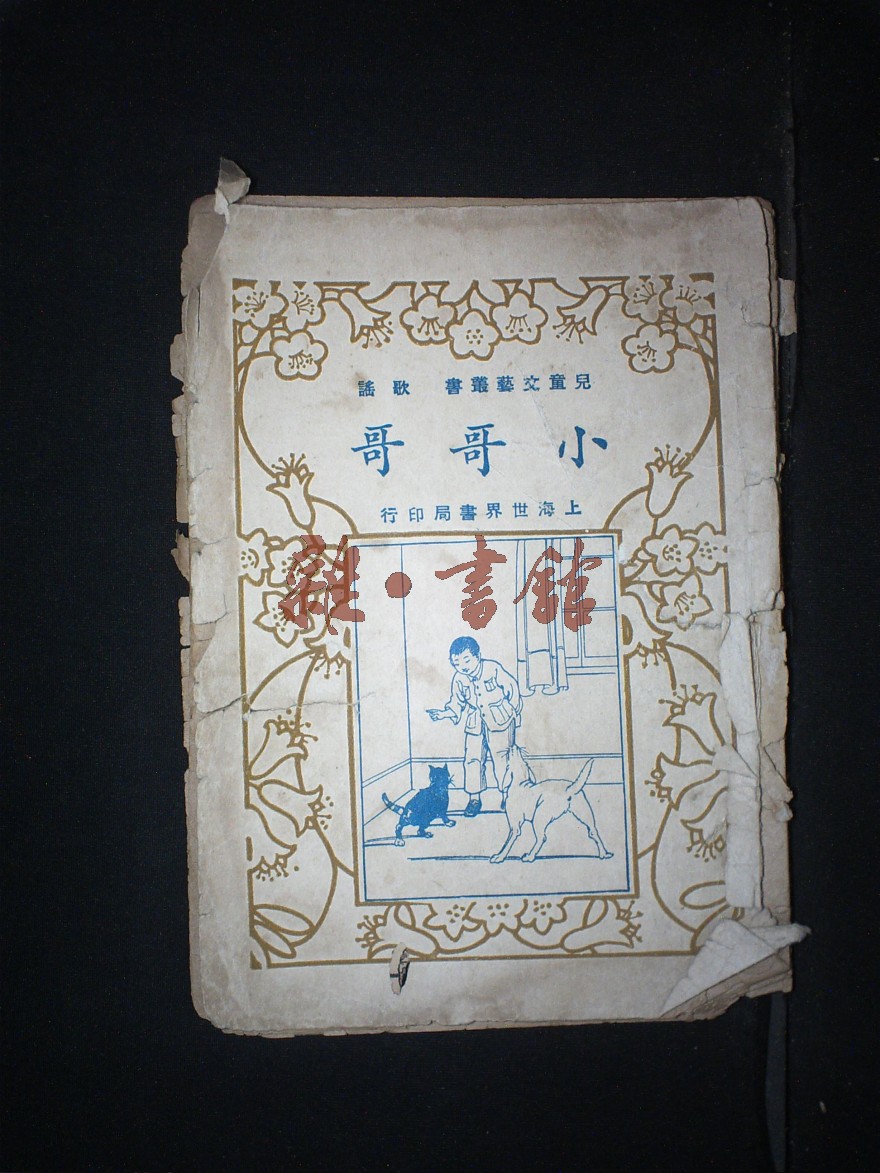 兒童文藝叢書 歌謠
小哥哥
上海世界書局印行
雜·書館